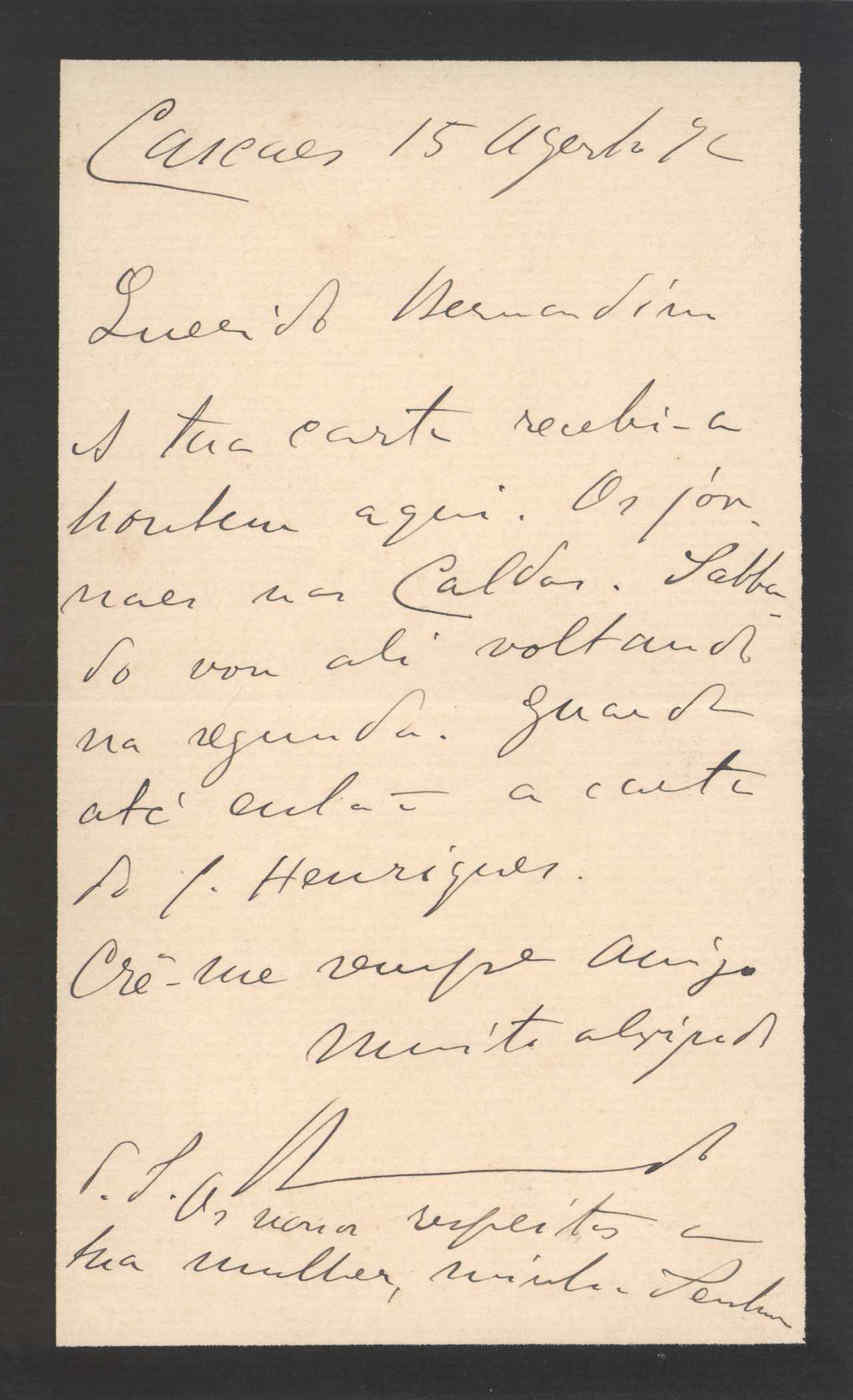 Cascaes 15 Agosto 92
Querido Bernardino
A tua carta recebi-a
hontem aqui. Os jor-
naes nas Caldas. Sabba-
do vou ali voltando
na segunda. Guarda
até então a carta
do J. Henriques.
Crê-me sempre amigo
muito obrigado
P. S. Os nossos respeitos a
tua mulher, minha Senhora